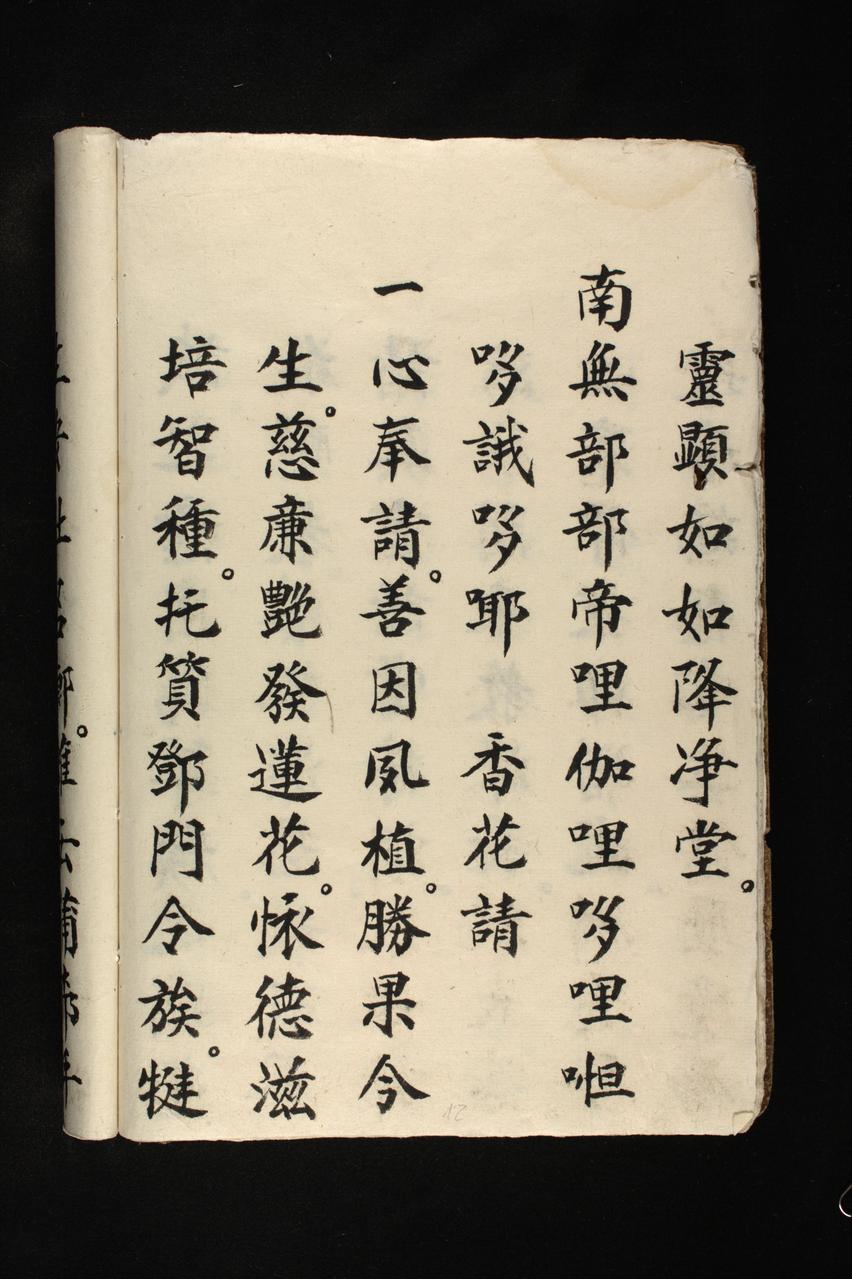 靈顯如如降净堂。
南無部部帝哩伽哩哆哩怛
哆誐哆耶 香花請
一心奉請。善因夙植。勝果今
生。慈廉艷發蓮花。怺德滋
培智種。托質鄧門令族。犍